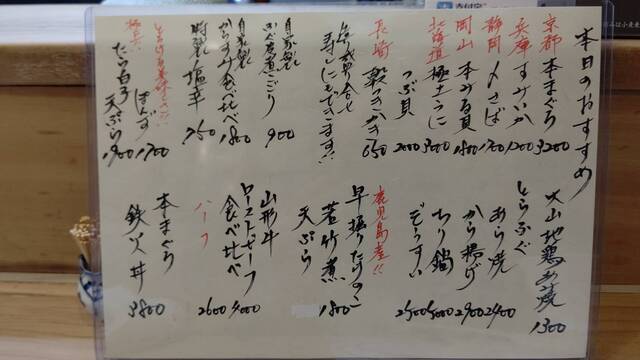 本日のおすすめ
京都 本まぐろ 3200
兵庫 すみいか 1200
静岡 〆さば 1700
岡山 本みる貝 1800
北海道 極上うに 3000
つぶ貝 2000
長崎 殻つきかき 650
寿しにもできます!!
自家製
ふぐ煮こごり 900
自家製
からすみ食べ比べ 1800
特製 塩辛 750
とろける美味しさ!!
ぽんず 1700
たら白子
天ぷら 1900
大山地鶏 炭焼 1300
とらふぐ
あら焼 2400
から揚げ 2900
ちり鍋 5000
ぞうすい 2500
鹿児島産!!
早掘りたけのこ
若竹煮 1800
天ぷら
山形牛
ローストビーフ
食べ比べ 4000
ハーフ 2600
本まぐろ
鉄火丼 3800